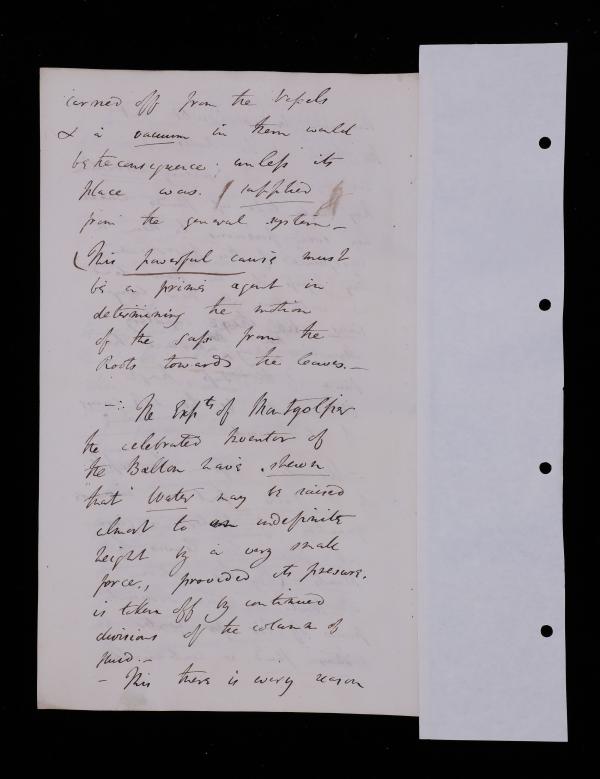 carried off from the Vessels
& a vacuum in them would
be the consequence; unless its
place was supplied
from the general system. –
(This powerful cause must
be a prime agent in
determining the motion
of the sap from the
Roots towards the leaves. –
–:· The Expts of Montgolfier
the celebrated Inventor of
the Balloon have shewn
that Water may be raised
almost to an indefinite
height by a very small
force, provided its pressure.
is taken off by continued
divisions of the column of
fluid. –
– This there is every reason